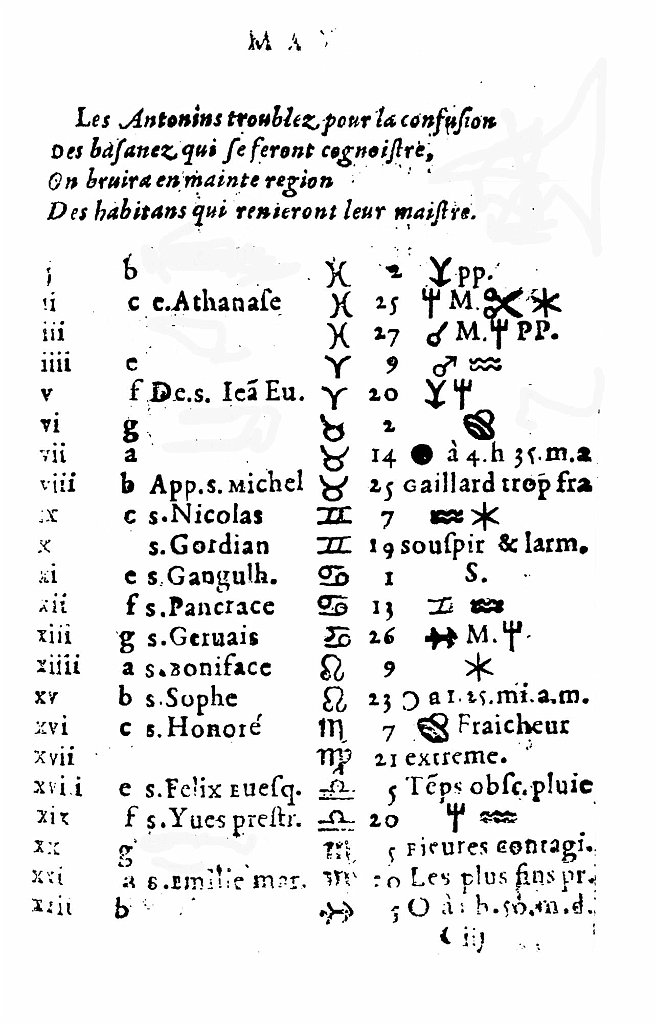 MAY
Les Antonins troublez pour la confuſion
Des baſanez qui ſe feront cognoiſtre,
On bruira en mainte region
Des habitans qui renieront leur maiſtre.
j b ♓ 2 pp.
ii c e. Athanaſe ♓ 25 M. ✶
iii ♓ 27 ☌ M. PP.
iiii e ♈ 9 ♂ ♒
v f De.s. Ieã Eu. ♈ 20
vi g ♉ 2
vii a ♉ 14 ● à 4.h 35.m.a
viii b App.s. Michel ♉ 25 Gaillard trop fra
ix c s.Nicolas ♊ 7 ♒ ✶
x s.Gordian ♊ 19 ſouſpir & larm.
xi e s.Gangulh. ♋ 1 S.
xii f s.Pancrace ♋ 13 ♊ ♒
xiii g s.Geruais ♋ 26 M.
xiiii a s.Boniface ♌ 9 ✶
xv b s.Sophe ♌ 23 a 1.25.mi.a.m.
xvi c s.Honoré ♏ 7 Fraicheur
xvii ♍ 21 extreme.
xviii e s.Felix Eueſq. ♎ 5 Tẽps obſc.pluie
xix f s.Yues preſtr. ♎ 20 ♒
xx g 5 Fieures contagi.
xxi a s.Emilie mar. 20 Les plus fins pr.
xxii b 5 O à
ij